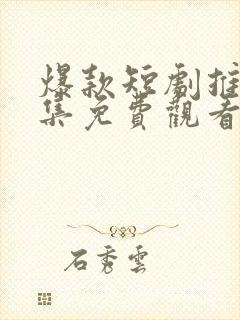 爆款短劇推
集免費觀看
石秀雲